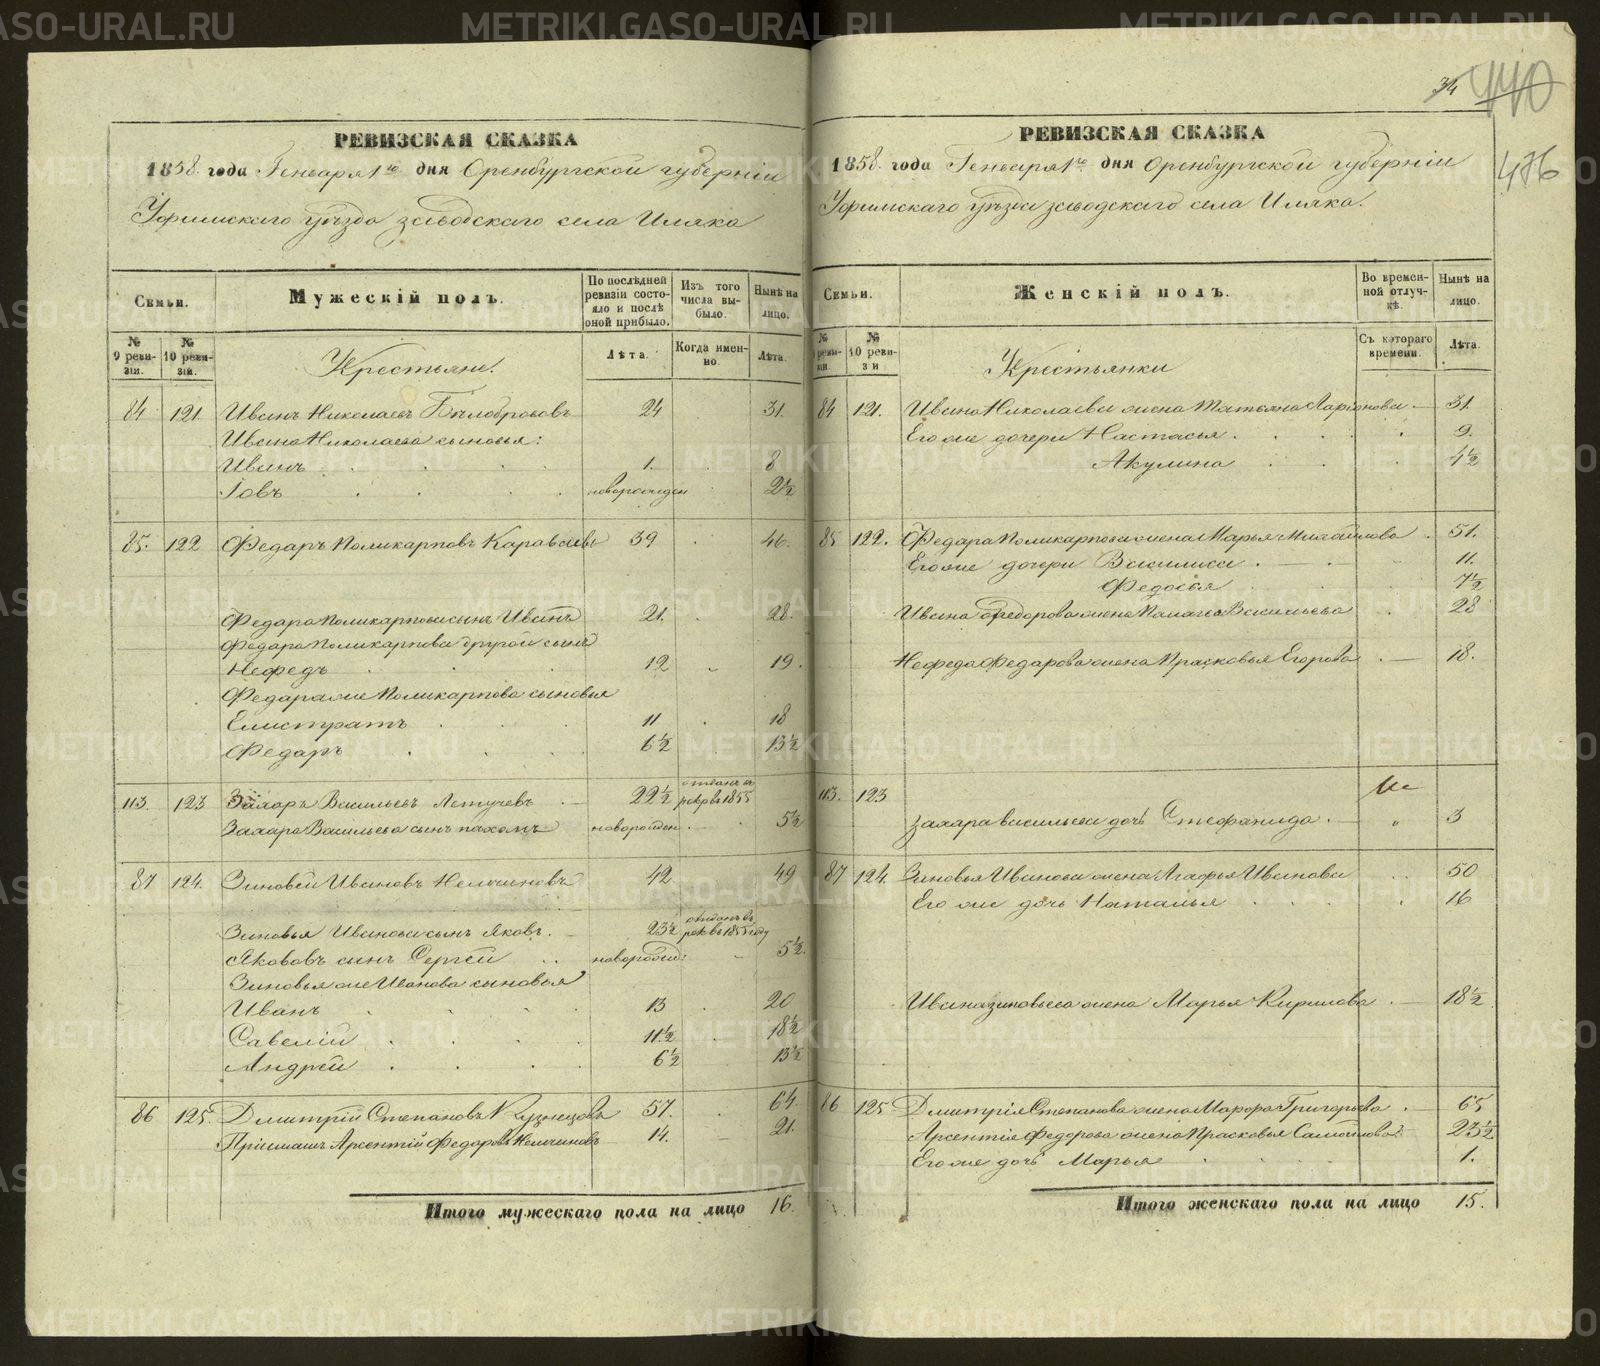 РЕВИЗСКАЯ СКАЗКА
1858. года Генваря 1го дня Оренбургской губернiи
Уфимскаго уѣзда заводскаго села Иляка
Семьи.
Мужескiй полъ.
По послѣдней ревизiи состояло и послѣ оной прибыло.
Изъ того числа выбыло.
Нынѣ на лицо.
№ 9 ревизiи.
№ 10 ревизiи.
Крестьяне.
Лѣта.
Когда именно.
Лѣта.
84 121. Иванъ Николаевъ Бѣлобровъ 24 31.
Ивана Николаева сыновья:
Иванъ 1. 8
Iовъ новорожден 2½
85. 122 Федаръ Поликарповъ Караваевъ 39 46.
Федара Поликарпова сынъ Иванъ 21. 28.
Федара Поликарпова другой сынъ
Нефедъ 12 19.
Федара же Поликарпова сыновья
Елистратъ 11 18
Федаръ 6½ 13½
113. 123 Захаръ Васильевъ Летучевъ 22½ отданъ въ рекр въ 1855
Захара Васильева сынъ Пахомъ новорожден. 5½
87 124. Зиновей Ивановъ 42 49
Зиновья Иванова сынъ Яковъ. 23½ отданъ въ рек въ 1855 году
Яковъ сынъ Сергей новорожден: 5½
Зиновья же Иванова сыновья
Иванъ 13 20
Савелiй 11½ 18½
Андрей 6½ 13½
86 125. Дмитрiй Степановъ Кузнецовъ 57. 64
Прiимышъ Арсентiй Федаровъ 14. 21.
Итого мужескаго пола на лицо 16.
34 440
476
РЕВИЗСКАЯ СКАЗКА
1858. года Генваря 1го дня Оренбургской губернiи
Уфимскаго уѣзда заводскаго села Иляка.
Семьи.
Женскiй полъ.
Во временной отлучкѣ.
Нынѣ на лицо.
№ 9 ревизiи
№ 10 ревизи
Крестьянки
Съ котораго времени.
Лѣта.
84 121. Ивана Николаева жена Татьяна Ларiонова 31.
Его же дочери Настасья 9.
Акулина 4½
85 122. Федара Поликарпова жена Марья Михайлова 51.
Его же дочери Василиса 11.
Федосья 7½
Ивана Федорова жена Палагея Васильева 28
Нефеда Федарова жена Прасковья Егорова 18.
113. 123
Захара Васильева дочь Стефанида 3
87 124. Зиновья Иванова жена Агафья Иванова 50
Его же дочь Наталья 16
Ивана Зиновьева жена Марья Кирилова 18½
86 125 Дмитрiя Степанова жена Марфа Григорьева 65
Арсентiя Федорова жена Прасковья Самойлова 23½
Его же дочь Марья 1.
Итого женскаго пола на лицо 15.
METRIKI.GASO-URAL.RU